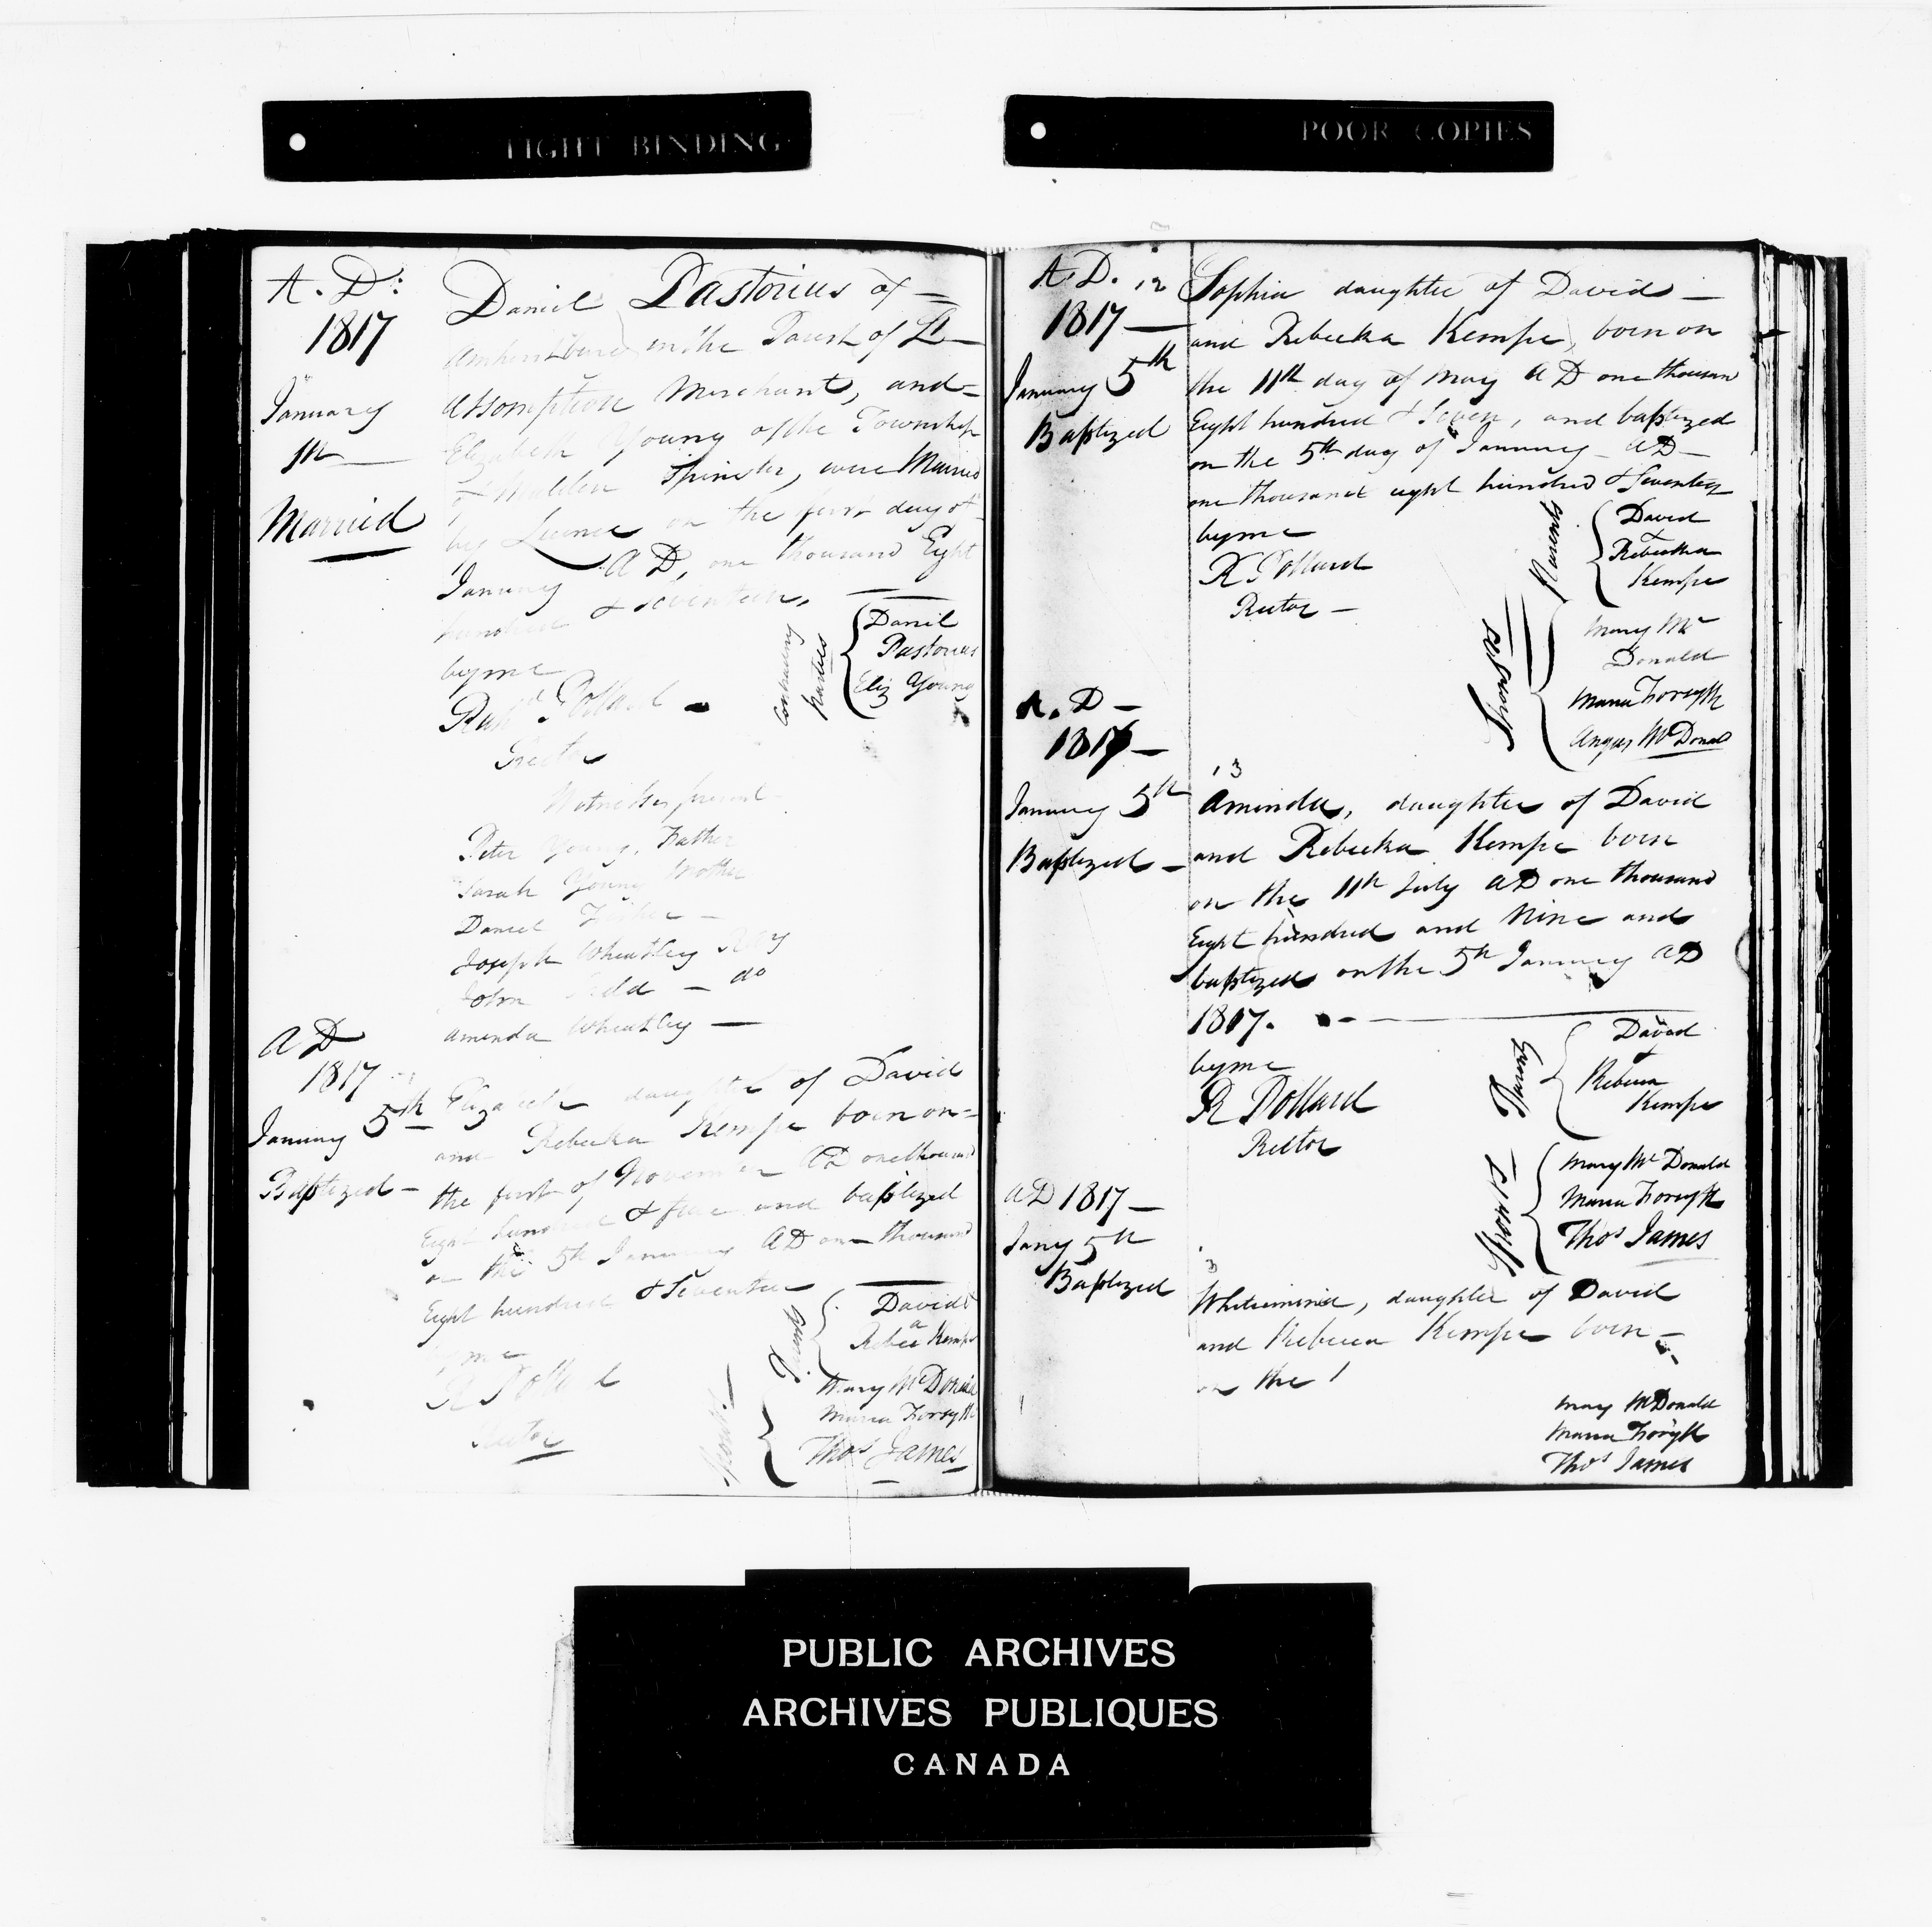 TIGHT BINDING
POOR COPIES
A. D:
1817
January
1st
Married
Daniel Pastorius of
Amherstburg in the Parish of St
Assomption Merchant, and
Elizabeth Young of the Township
of Malden Spinster, were Married
by Licence on the first day of
January A D, one thousand Eight
hundred & seventeen,
by me
Richd Pollard
Rector
Contracting parties
Daniel
Pastorius
Eliz Young
Witnesses present
Peter Young, Father
Sarah Young Mother
Daniel Fisher
Joseph Wheatley
John do
Amenda Wheatley
A D
1817
January 5th
Baptized
Elizabeth daughter of David
and Rebecka Kempe born on
the first of November AD one thousand
Eight hundred & five and baptized
on the 5th January AD one thousand
Eight hundred & Seventeen
by me
R Pollard
Rector
Parents
David &
Kempe
Sponsrs
Mary McDonald
Maria Forsyth
Thos James
A. D.
1817
January 5th
Baptized
12
Sophia daughter of David
and Rebecka Kempe, born on
the 11th day of May A D one thousan
Eight hundred & Seven, and baptized
on the 5th day of January AD
one thousand eight hundred & Seventeen
by me
R Pollard
Rector
Parents
David
&
Rebecka
Kempe
Sponsrs
Mary Mc
Donald
Maria Forsyth
Angus McDonald
A. D
1817
January 5th
Baptized
13
Aminda, daughter of David
and Rebecka Kempe born
on the 11th July AD one thousand
Eight hundred and Nine and
baptized on the 5th January AD
1817.
by me
R Pollard
Rector
Parents
David
&
Rebecca
Kempe
Sponsrs
Mary Mc Donald
Maria Forsyth
Thos James
AD 1817
Jany 5th
Baptized
3
daughter of David
and Rebecca Kempe born
on the 1
Mary McDonald
Maria Forsyth
Thos James
PUBLIC ARCHIVES
ARCHIVES PUBLIQUES
CANADA